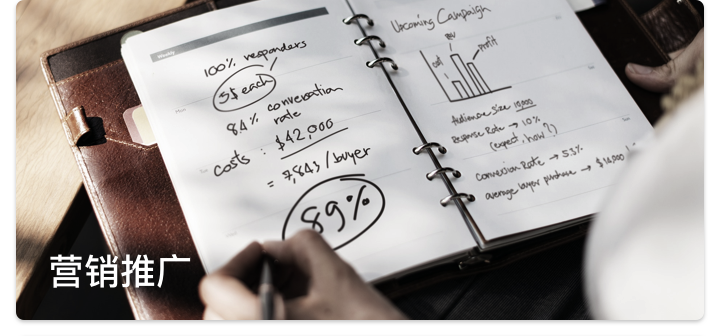 Weekly
100% responders
5$ each
84% conversation
rate
costs : $42,000
= 7,843/buyer
89%
Upcoming Campaign
Profit
Audience size 10,000
Response Rate → 10%
(expect, how?)
Conversion Rate → 53%
average buyer purchase → $14,000
营销推广